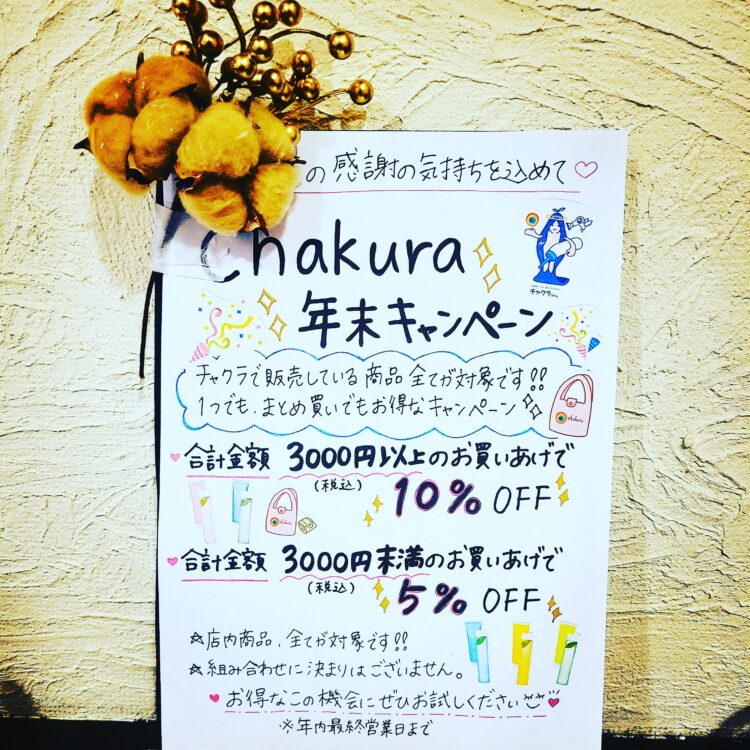 の感謝の気持ちを込めて♡
chakura
チャクラさん
年末キャンペーン
チャクラで販売している商品全てが対象です!!
1つでも、まとめ買いでもお得なキャンペーン
合計金額 3000円以上のお買いあげで
(税込)
10% OFF
合計金額 3000円未満のお買いあげで
(税込)
5% OFF
☆店内商品、全てが対象です!!
☆組み合わせに決まりはございません。
♥お得なこの機会にぜひお試しください♥
※年内最終営業日まで